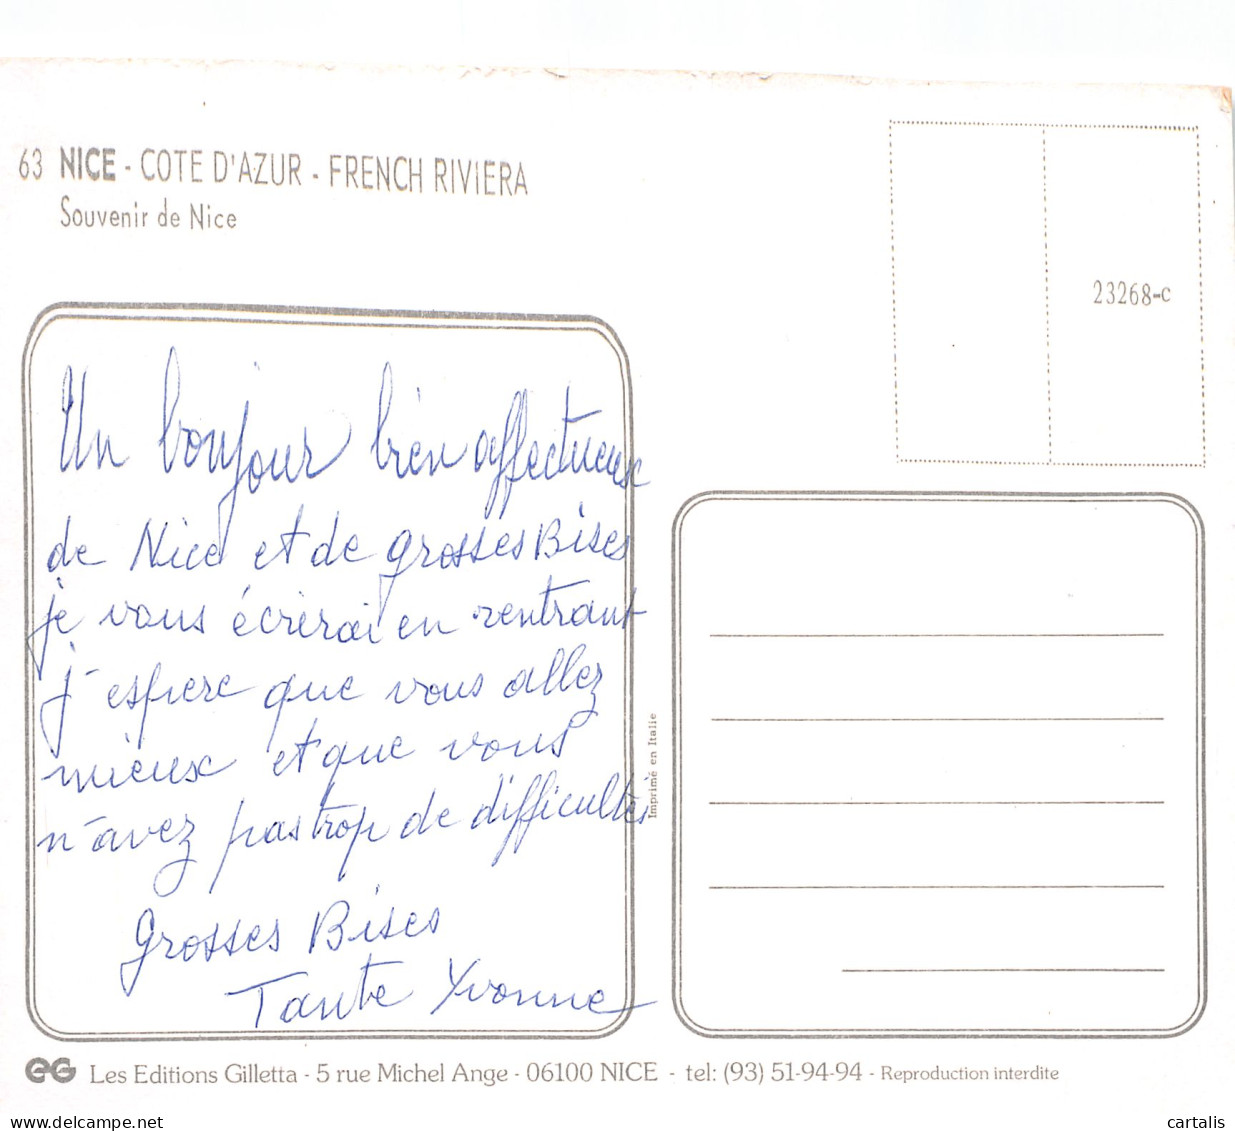 63 NICE - COTE D'AZUR - FRENCH RIVIERA
Souvenir de Nice
23268-c
Un bonjour bien affectueux
de Nice et de grosses Bises
je vous écrirai en rentrant
j'espere que vous allez
mieux et que vous
n'avez pas trop de difficultés
Grosses Bises
Tante Yvonne
Imprimé en Italie
EG Les Editions Gilletta - 5 rue Michel Ange - 06100 NICE - tel: (93) 51-94-94 - Reproduction interdite
delcampe.net
cartalis